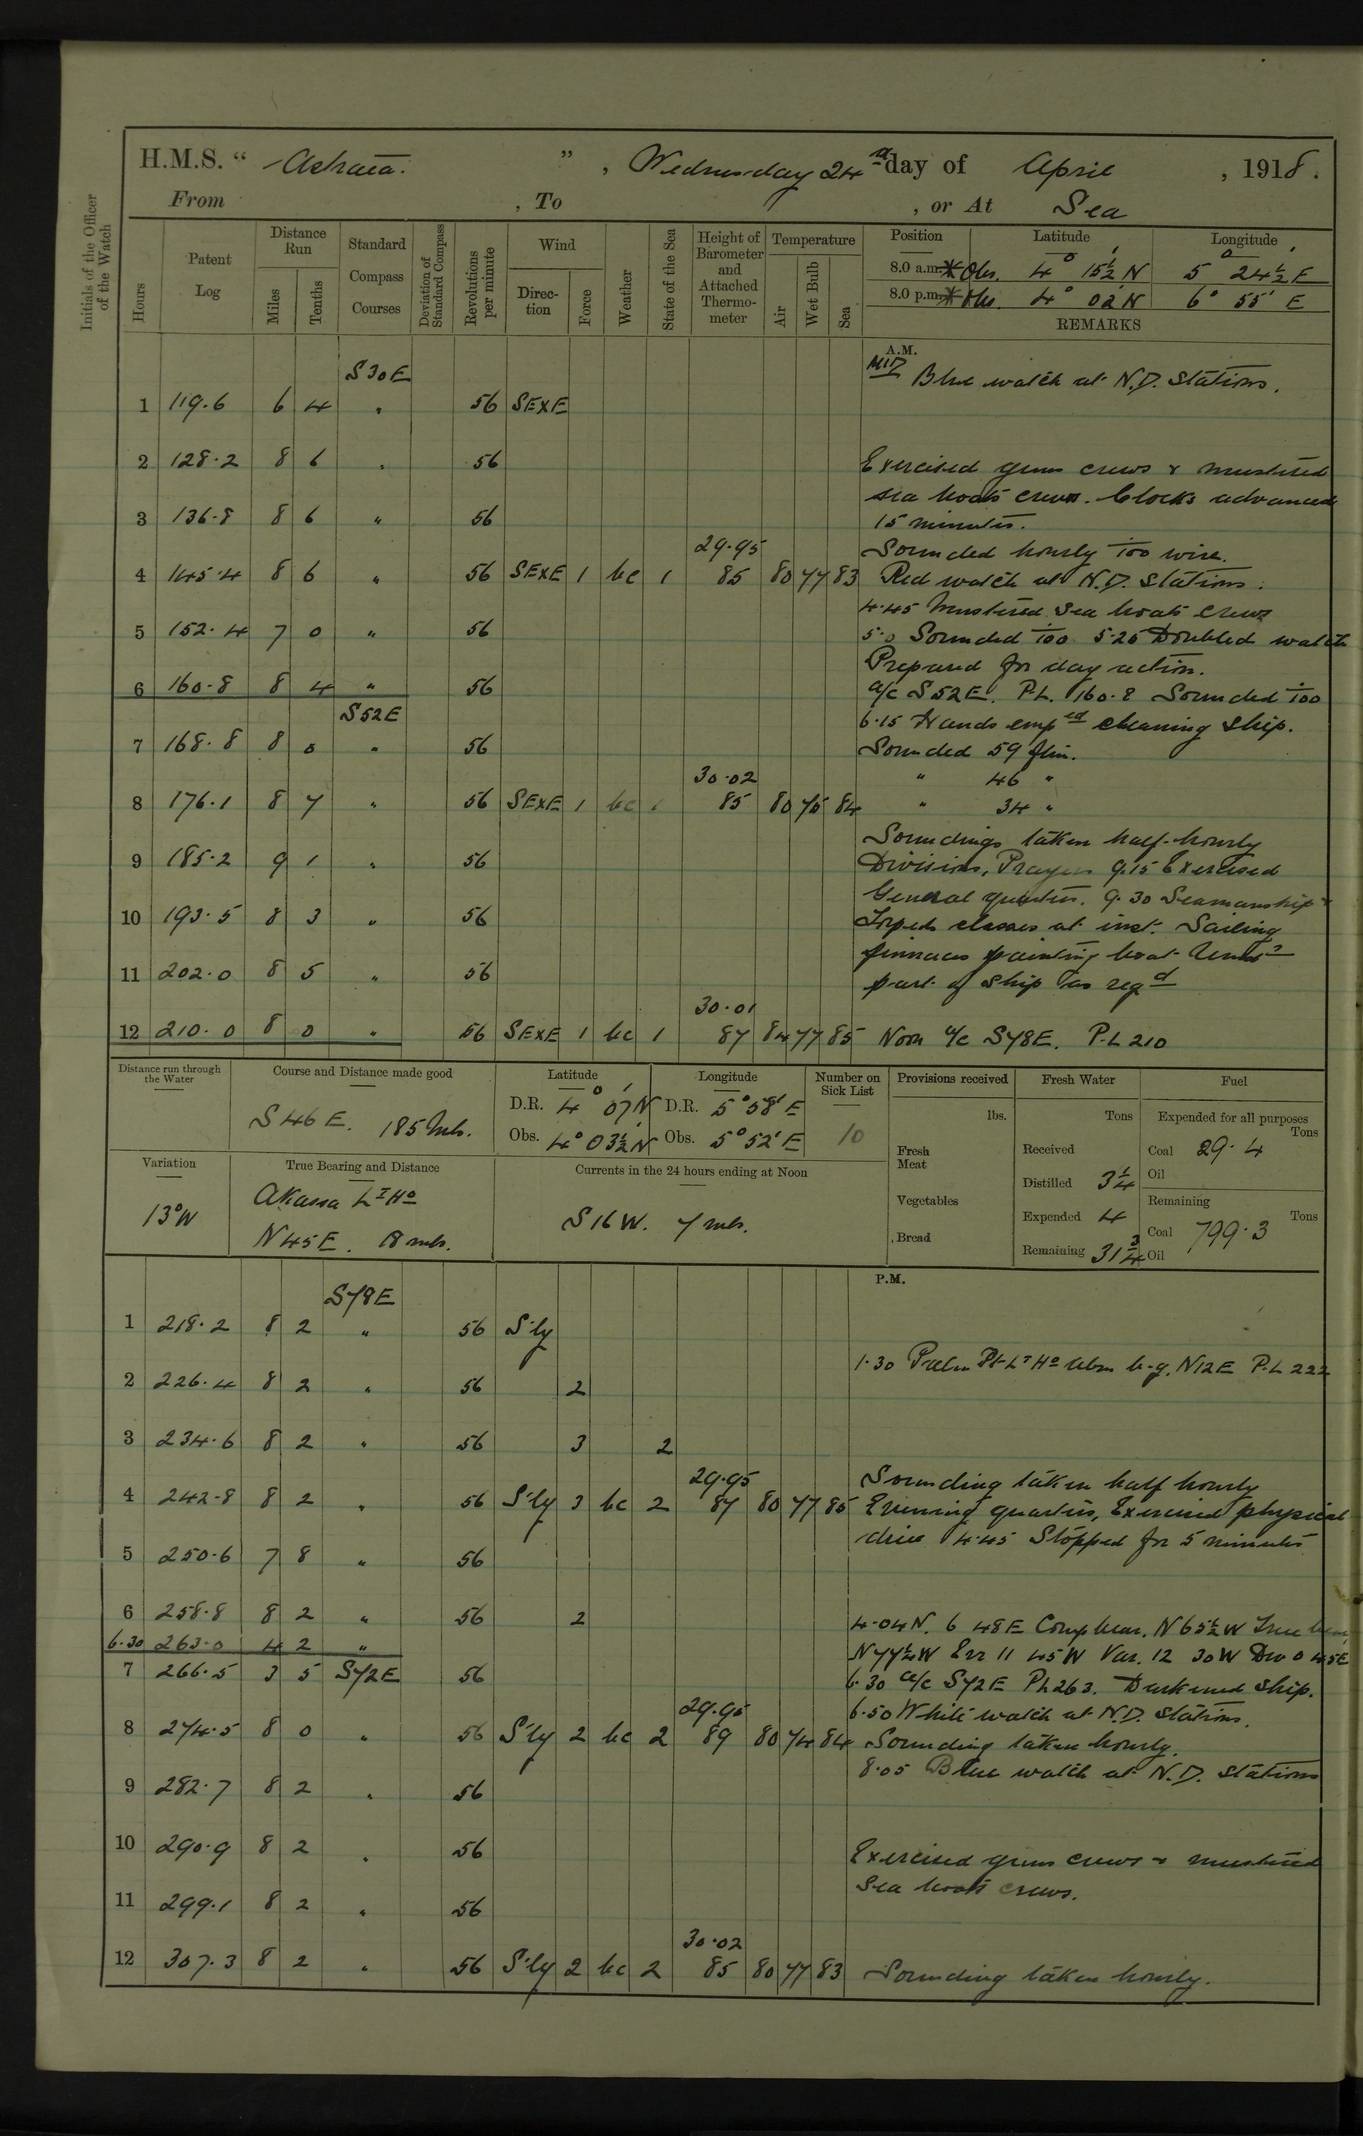 H.M.S. " Astraea. ", Wednesday 24th day of April, 1918.
From , To , or At Sea
Initials of the Officer of the Watch
Hours
Patent Log
Distance Run
Miles Tenths
Standard Compass Courses
Deviation of Standard Compass
Revolutions per minute
Wind
Direction Force
Weather
State of the Sea
Height of Barometer and Attached Thermometer
Temperature
Air Wet Bulb Sea
Position Latitude Longitude
8.0 a.m. Obs. 4° 15½' N 5° 24½' E
8.0 p.m. Obs. 4° 02' N 6° 55' E
REMARKS
A.M.
S30E
MID Blue watch at N.D. Stations.
1 119.6 6 4 " 56 SExE
2 128.2 8 6 " 56 Exercised guns crews & mustered
sea boats crews. Clocks advanced
3 136.8 8 6 " 56 15 minutes.
29.95 Sounded hourly 100 wire.
4 145.4 8 6 " 56 SExE 1 bc 1 85 80 77 83 Red watch at N.D. Stations.
4.45 Mustered sea boats crews
5 152.4 7 0 " 56 5.0 Sounded 100 5.25 Doubled watch
Prepared for day action.
6 160.8 8 4 " 56 a/c S52E. P.L. 160.8 Sounded 100
S52E 6.15 Hands emp'ed cleaning ship.
7 168.8 8 0 " 56 Sounded 59 fm.
30.02 " 46 "
8 176.1 8 7 " 56 SExE 1 bc 1 85 80 75 84 " 34 "
Soundings taken half-hourly
9 185.2 9 1 " 56 Divisions, Prayers 9.15 Exercised
General quarters. 9.30 Seamanship &
10 193.5 8 3 " 56 Torpedo classes at inst. Sailing
pinnaces painting boat
11 202.0 8 5 " 56 part of ship as reqd
30.01
12 210.0 8 0 " 56 SExE 1 bc 1 87 84 77 85 Noon a/c S78E. P.L 210
Distance run through the Water
Course and Distance made good
S46E. 185 Mls.
Latitude Longitude
D.R. 4° 07' N D.R. 5° 58' E
Obs. 4° 03½' N Obs. 5° 52' E
Number on Sick List
10
Provisions received
lbs.
Fresh Meat
Vegetables
Bread
Fresh Water
Tons
Received
Distilled 3¼
Expended 4
Remaining 31¾
Fuel
Expended for all purposes
Tons
Coal 29.4
Oil
Remaining
Tons
Coal 799.3
Oil
Variation
13°W
True Bearing and Distance
Akassa Lt Ho
N45E. 18 mls.
Currents in the 24 hours ending at Noon
S16W. 7 mls.
P.M.
S78E
1 218.2 8 2 " 56 S'ly
1.30 Palm Pt Lt Ho abm b-g. N12E P.L 222
2 226.4 8 2 " 56 2
3 234.6 8 2 " 56 3 2
29.95 Sounding taken half hourly
4 242.8 8 2 " 56 S'ly 3 bc 2 87 80 77 85 Evening quarters, Exercised physical
drill 4.45 Stopped for 5 minutes
5 250.6 7 8 " 56
6 258.8 8 2 " 56 2 4.04N. 6 48E Comp bear. N65½W True bear,
6.30 263.0 4 2 " N77¼W Err 11 45W Var. 12 30W Dev 0 45E
7 266.5 3 5 S72E 56 6.30 a/c S72E PL 263. Darkened ship.
29.95 6.50 White watch at N.D. Stations.
8 274.5 8 0 " 56 S'ly 2 bc 2 89 80 74 84 Sounding taken hourly.
8.05 Blue watch at N.D. Stations
9 282.7 8 2 " 56
10 290.9 8 2 " 56 Exercised guns crews & mustered
sea boats crews.
11 299.1 8 2 " 56
30.02
12 307.3 8 2 " 56 S'ly 2 bc 2 85 80 77 83 Sounding taken hourly.